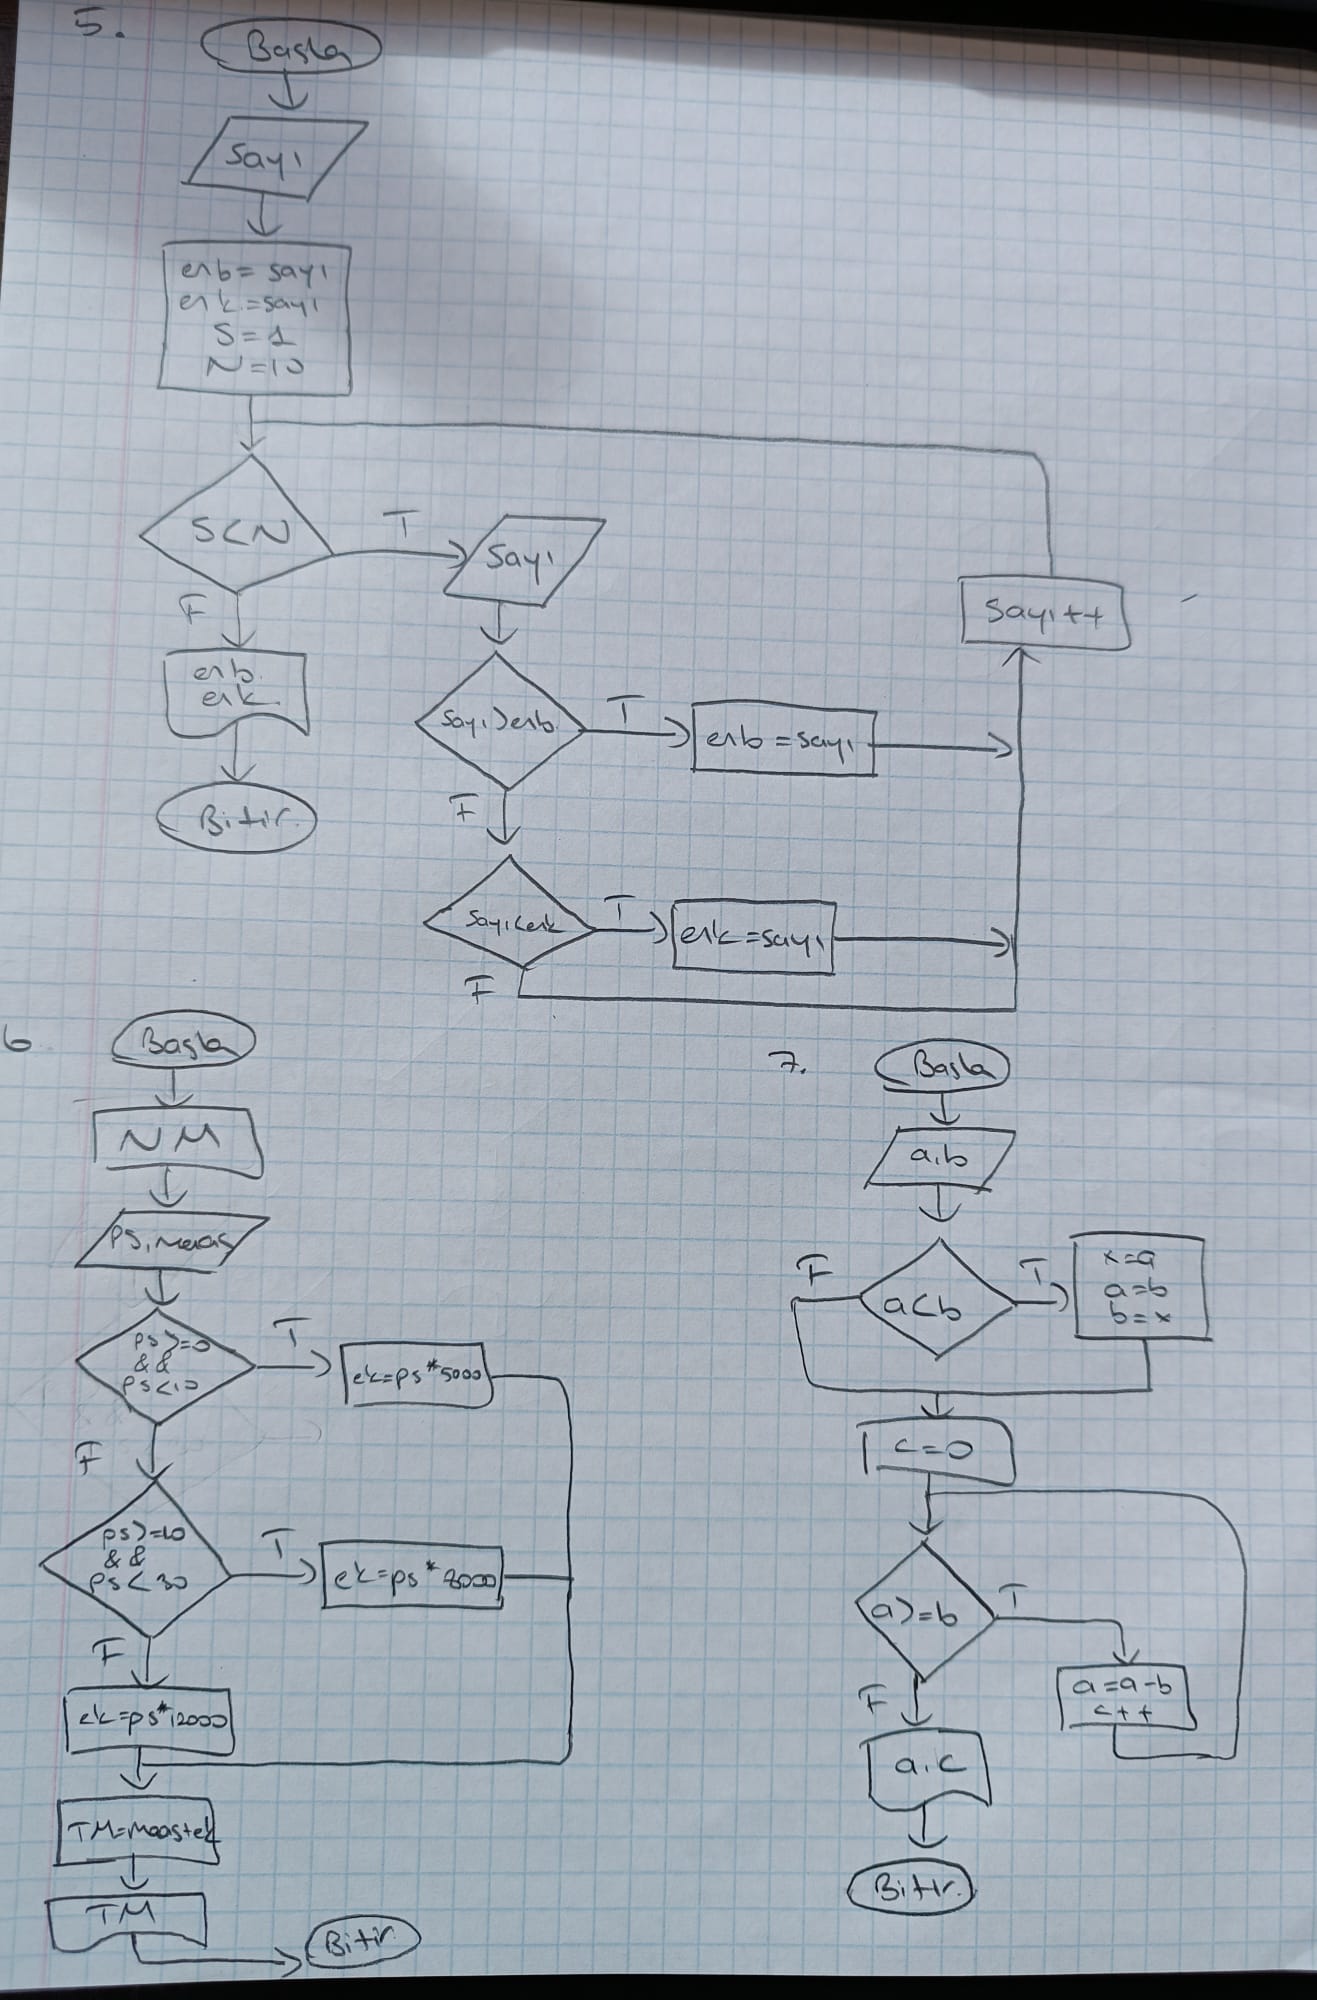 5.
Başla
Sayı
enb = sayı
enk = sayı
S = 1
N = 10
S<N
T
Sayı
F
enb
enk
Bitir.
Sayı++
Sayı>enb
T
enb = sayı
F
Sayı<enk
T
enk = sayı
F
6
Başla
NM
PS, maaş
ps>=0
&&
ps<10
T
ek=ps*5000
F
ps>=10
&&
ps<30
T
ek=ps*8000
F
ek=ps*12000
TM=maas+ek
TM
Bitir.
7.
Başla
a,b
F
a<b
T
x=a
a=b
b=x
c=0
a>=b
T
a=a-b
c++
F
a,c
Bitir.